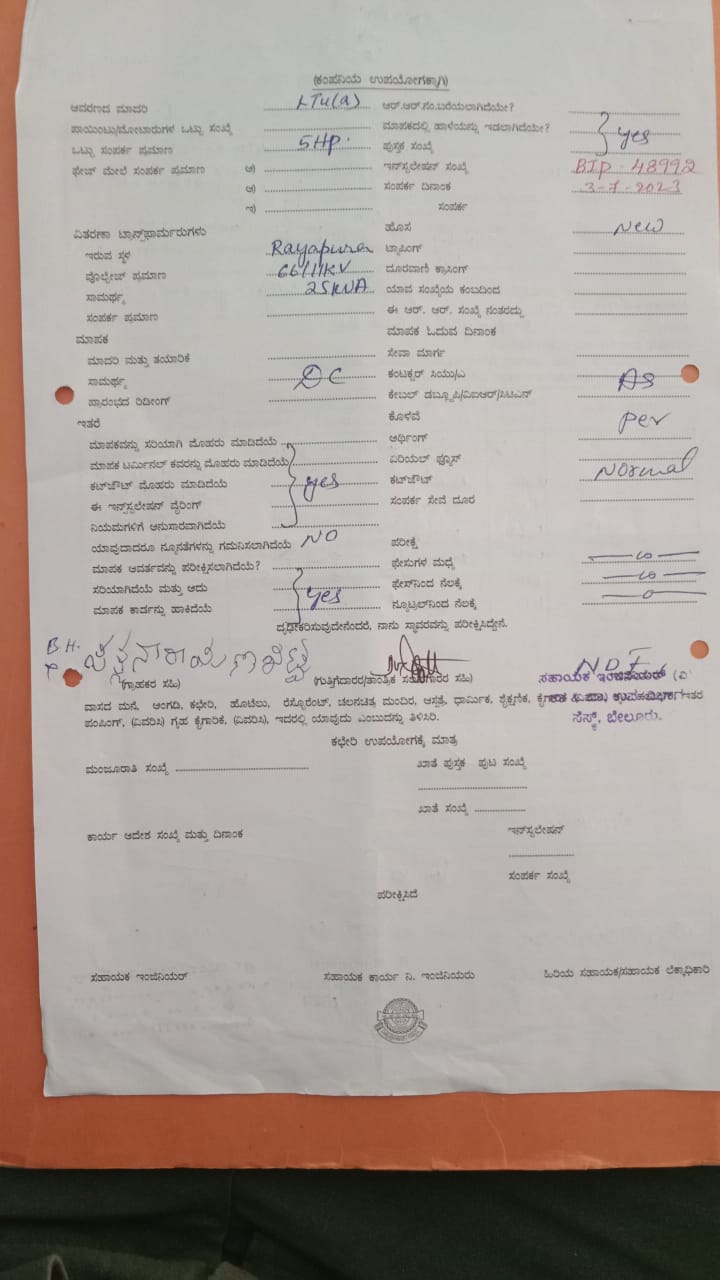 (ಕಂಪನಿಯ ಉಪಯೋಗಕ್ಕಾಗಿ)
ಆವರಣದ ಮಾದರಿ LTU(a) ಆರ್.ಆರ್.ನಂ.ಬರೆಯಲಾಗಿದೆಯೇ?
ಪಾಯಿಂಟು/ಮೋಟಾರುಗಳ ಒಟ್ಟು ಸಂಖ್ಯೆ ಮಾಪಕದಲ್ಲಿ ಹಾಳೆಯನ್ನು ಇಡಲಾಗಿದೆಯೇ? yes
ಒಟ್ಟು ಸಂಪರ್ಕ ಪ್ರಮಾಣ 5HP. ಪುಸ್ತಕ ಸಂಖ್ಯೆ
ಫೇಜ್ ಮೇಲೆ ಸಂಪರ್ಕ ಪ್ರಮಾಣ ಅ) ಇನ್‌ಸ್ಟಲೇಷನ್ ಸಂಖ್ಯೆ BIP-48992
ಆ) ಸಂಪರ್ಕ ದಿನಾಂಕ 3-7-2023
ಇ) ಸಂಪರ್ಕ
ವಿತರಣಾ ಟ್ರಾನ್ಸ್‌ಫಾರ್ಮರುಗಳು ಹೊಸ New
ಇರುವ ಸ್ಥಳ Rayapura ಟ್ಯಾಪಿಂಗ್
ವೊಲ್ಟೇಜ್ ಪ್ರಮಾಣ 66/11KV ದೂರವಾಣಿ ಕ್ರಾಸಿಂಗ್
ಸಾಮರ್ಥ್ಯ 25KVA ಯಾವ ಸಂಖ್ಯೆಯ ಕಂಬದಿಂದ
ಸಂಪರ್ಕ ಪ್ರಮಾಣ ಈ ಆರ್. ಆರ್. ಸಂಖ್ಯೆ ನಂತರದ್ದು
ಮಾಪಕ ಮಾಪಕ ಓದುವ ದಿನಾಂಕ
ಮಾದರಿ ಮತ್ತು ತಯಾರಿಕೆ ಸೇವಾ ಮಾರ್ಗ
ಸಾಮರ್ಥ್ಯ DC ಕಂಟಕ್ಟರ್ ಸಿಯು/ಎ
ಪ್ರಾರಂಭದ ರಿಡೀಂಗ್ ಕೇಬಲ್ ಡಬ್ಲ್ಯೂಪಿ/ವಿಐಆರ್/ಸಿಟಿಎಸ್ AS
ಇತರೆ ಕೊಳವೆ per
ಮಾಪಕವನ್ನು ಸರಿಯಾಗಿ ಮೊಹರು ಮಾಡಿದೆಯೆ ಅರ್ಥಿಂಗ್
ಮಾಪಕ ಟರ್ಮಿನಲ್ ಕವರನ್ನು ಮೊಹರು ಮಾಡಿದೆಯೆ ಏರಿಯಲ್ ಫ್ಯೂಸ್
ಕಟ್‌ಔಟ್ ಮೊಹರು ಮಾಡಿದೆಯೆ yes ಕಟ್‌ಔಟ್ Normal
ಈ ಇನ್‌ಸ್ಟಲೇಷನ್ ವೈರಿಂಗ್ ಸಂಪರ್ಕ ಸೇವೆ ದೂರ
ನಿಯಮಗಳಿಗೆ ಅನುಸಾರವಾಗಿದೆಯೆ
ಯಾವುದಾದರೂ ನ್ಯೂನತೆಗಳನ್ನು ಗಮನಿಸಲಾಗಿದೆಯೆ NO ಪರೀಕ್ಷೆ
ಮಾಪಕ ಆವರ್ತವನ್ನು ಪರೀಕ್ಷಿಸಲಾಗಿದೆಯೆ? ಫೇಸುಗಳ ಮಧ್ಯೆ ∞
ಸರಿಯಾಗಿದೆಯೆ ಮತ್ತು ಅದು yes ಫೇಸ್‌ನಿಂದ ನೆಲಕ್ಕೆ ∞
ಮಾಪಕ ಕಾರ್ಡನ್ನು ಹಾಕಿದೆಯೆ ನ್ಯೂಟ್ರಲ್‌ನಿಂದ ನೆಲಕ್ಕೆ 0
ದೃಢೀಕರಿಸುವುದೇನೆಂದರೆ, ನಾನು ಸ್ಥಾವರವನ್ನು ಪರೀಕ್ಷಿಸಿದ್ದೇನೆ.
B.H.
(ಗ್ರಾಹಕರ ಸಹಿ) (ಗುತ್ತಿಗೆದಾರರ/ತಾಂತ್ರಿಕ ಸಹಿ) ಸಹಾಯಕ ಇಂಜಿನಿಯರ್ (ವಿ
ವಾಸದ ಮನೆ, ಅಂಗಡಿ, ಕಛೇರಿ, ಹೊಟೆಲು, ರೆಸ್ಟೊರೆಂಟ್, ಚಲನಚಿತ್ರ ಮಂದಿರ, ಆಸ್ಪತ್ರೆ, ಧಾರ್ಮಿಕ, ಶೈಕ್ಷಣಿಕ, ಇತರ
ಪಂಪಿಂಗ್, (ವಿವರಿಸಿ) ಗೃಹ ಕೈಗಾರಿಕೆ, (ವಿವರಿಸಿ), ಇದರಲ್ಲಿ ಯಾವುದು ಎಂಬುದನ್ನು ತಿಳಿಸಿರಿ. ಸೆಸ್ಕ್, ಬೇಲೂರು.
ಕಛೇರಿ ಉಪಯೋಗಕ್ಕೆ ಮಾತ್ರ
ಮಂಜೂರಾತಿ ಸಂಖ್ಯೆ ಖಾತೆ ಪುಸ್ತಕ ಪುಟ ಸಂಖ್ಯೆ
ಖಾತೆ ಸಂಖ್ಯೆ
ಕಾರ್ಯ ಆದೇಶ ಸಂಖ್ಯೆ ಮತ್ತು ದಿನಾಂಕ ಇನ್‌ಸ್ಟಲೇಷನ್
ಸಂಪರ್ಕ ಸಂಖ್ಯೆ
ಪರೀಕ್ಷಿಸಿದೆ
ಸಹಾಯಕ ಇಂಜಿನಿಯರ್ ಸಹಾಯಕ ಕಾರ್ಯ ನಿ. ಇಂಜಿನಿಯರು ಹಿರಿಯ ಸಹಾಯಕ/ಸಹಾಯಕ ಲೆಕ್ಕಾಧಿಕಾರಿ